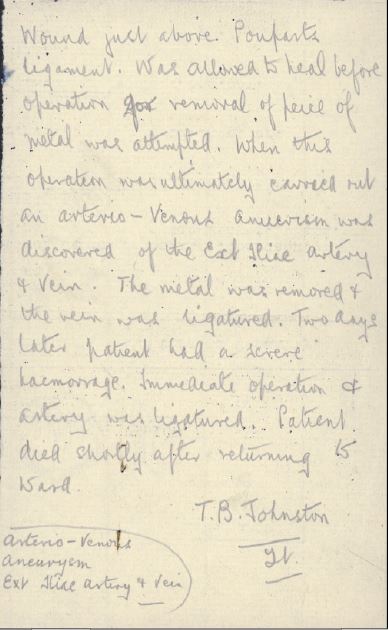 Wound just above Pouparts
ligament. Was allowed to heal before
operation for removal of peice of
metal was attempted. When this
operation was ultimately carried out
an arterio-Venous aneurism was
discovered of the Ext Iliac artery
& Vein. The metal was removed &
the vein was ligatured. Two days
later patient had a severe
haemorrage. Immediate operation &
artery was ligatured. Patient
died shortly after returning to
ward
T.B. Johnston
Arterio-Venous
Aneurysm
Ext Iliac artery & Vein